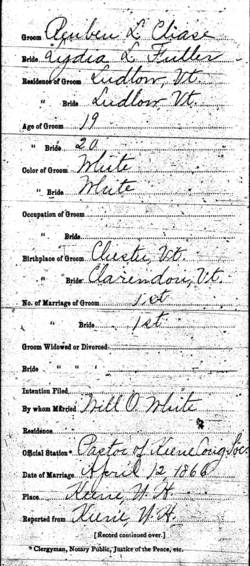 Groom Reuben L Chase
Bride Lydia L Fuller
Residence of Groom Ludlow, Vt.
" Bride Ludlow Vt.
Age of Groom 19
" Bride 20
Color of Groom White
" Bride White
Occupation of Groom
" Bride
Birthplace of Groom Chester, Vt.
" Bride Clarendon, Vt.
No. of Marriage of Groom 1st
" Bride 1st
Groom Widowed or Divorced
Bride " " "
Intention Filed
By whom Married Will O. White
Residence
Official Station* Pastor of Keene Cong Soc
Date of Marriage April 12 1866
Place Keene, N. H.
Reported from Keene, N. H.
[Record continued over.]
* Clergyman, Notary Public, Justice of the Peace, etc.